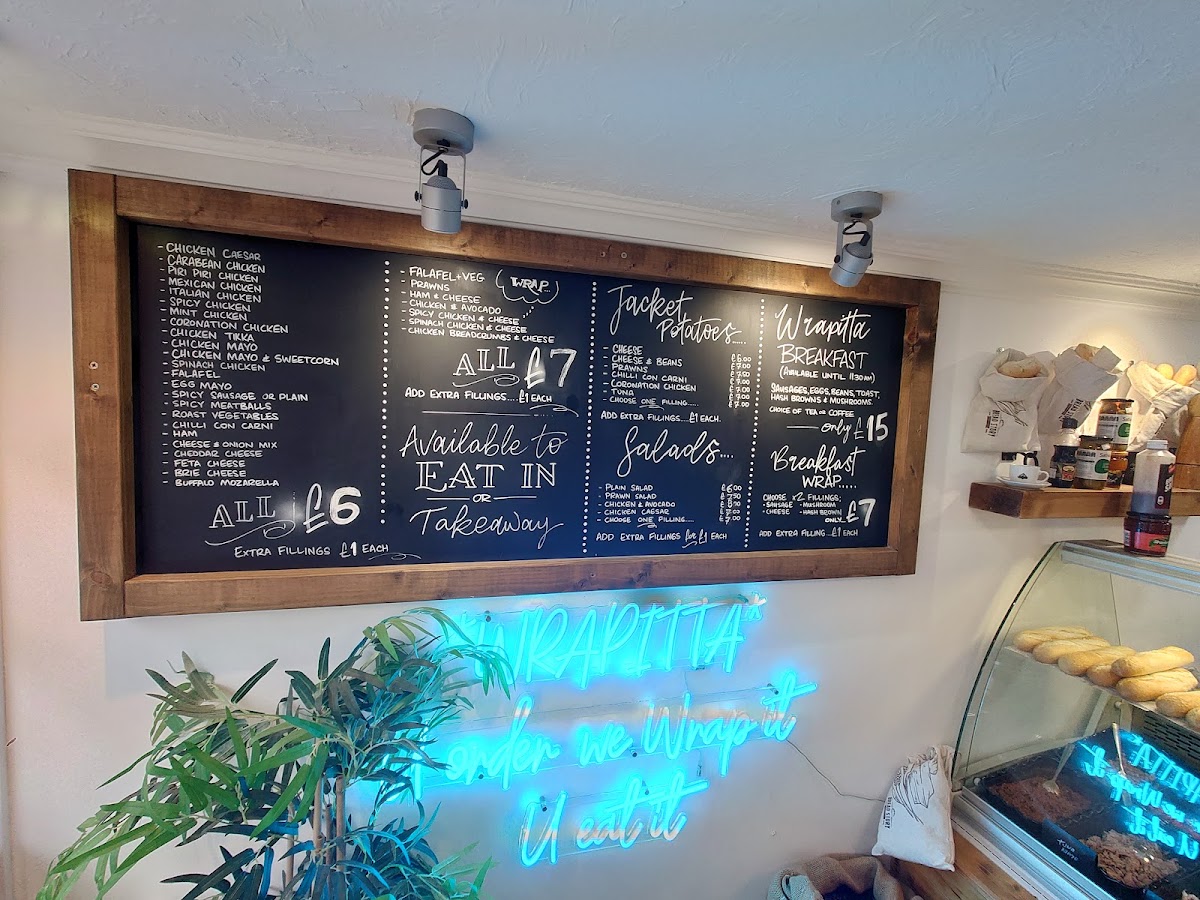 - CHICKEN CAESAR
- CARABEAN CHICKEN
- PIRI PIRI CHICKEN
- MEXICAN CHICKEN
- ITALIAN CHICKEN
- SPICY CHICKEN
- MINT CHICKEN
- CORONATION CHICKEN
- CHICKEN TIKKA
- CHICKEN MAYO
- CHICKEN MAYO & SWEETCORN
- SPINACH CHICKEN
- FALAFEL
- EGG MAYO
- SPICY SAUSAGE OR PLAIN
- SPICY MEATBALLS
- ROAST VEGETABLES
- CHILLI CON CARNI
- HAM
- CHEESE & ONION MIX
- CHEDDAR CHEESE
- FETA CHEESE
- BRIE CHEESE
- BUFFALO MOZARELLA
ALL £6
EXTRA FILLINGS £1 EACH
- FALAFEL+VEG
- PRAWNS
- HAM & CHEESE
- CHICKEN & AVOCADO
- SPICY CHICKEN & CHEESE
- SPINACH CHICKEN & CHEESE
- CHICKEN BREADCRUMBS & CHEESE
WRAP...
ALL £7
ADD EXTRA FILLINGS....£1 EACH
Available to
EAT IN
OR
Takeaway
Jacket
Potatoes.....
- CHEESE £6.00
- CHEESE & BEANS £7.00
- PRAWNS £7.50
- CHILLI CON CARNI £7.00
- CORONATION CHICKEN £7.00
- TUNA £7.00
- CHOOSE ONE FILLING..... £7.00
ADD EXTRA FILLINGS....£1 EACH.
Salads....
- PLAIN SALAD £6.00
- PRAWN SALAD £7.50
- CHICKEN & AVOCADO
- CHICKEN CAESAR £7.00
- CHOOSE ONE FILLING.... £7.00
ADD EXTRA FILLINGS for £1 EACH
Wrapitta
BREAKFAST
(AVAILABLE UNTIL 11:30AM)
SAUSAGES, EGGS, BEANS, TOAST,
HASH BROWNS & MUSHROOMS
CHOICE OF TEA OR COFFEE
only £15
Breakfast
WRAP.....
CHOOSE x2 FILLINGS;
- SAUSAGE - MUSHROOM
- CHEESE - HASH BROWN
ONLY... £7
ADD EXTRA FILLING....£1 EACH
"WRAPITTA"
U order we Wrap it
U eat it